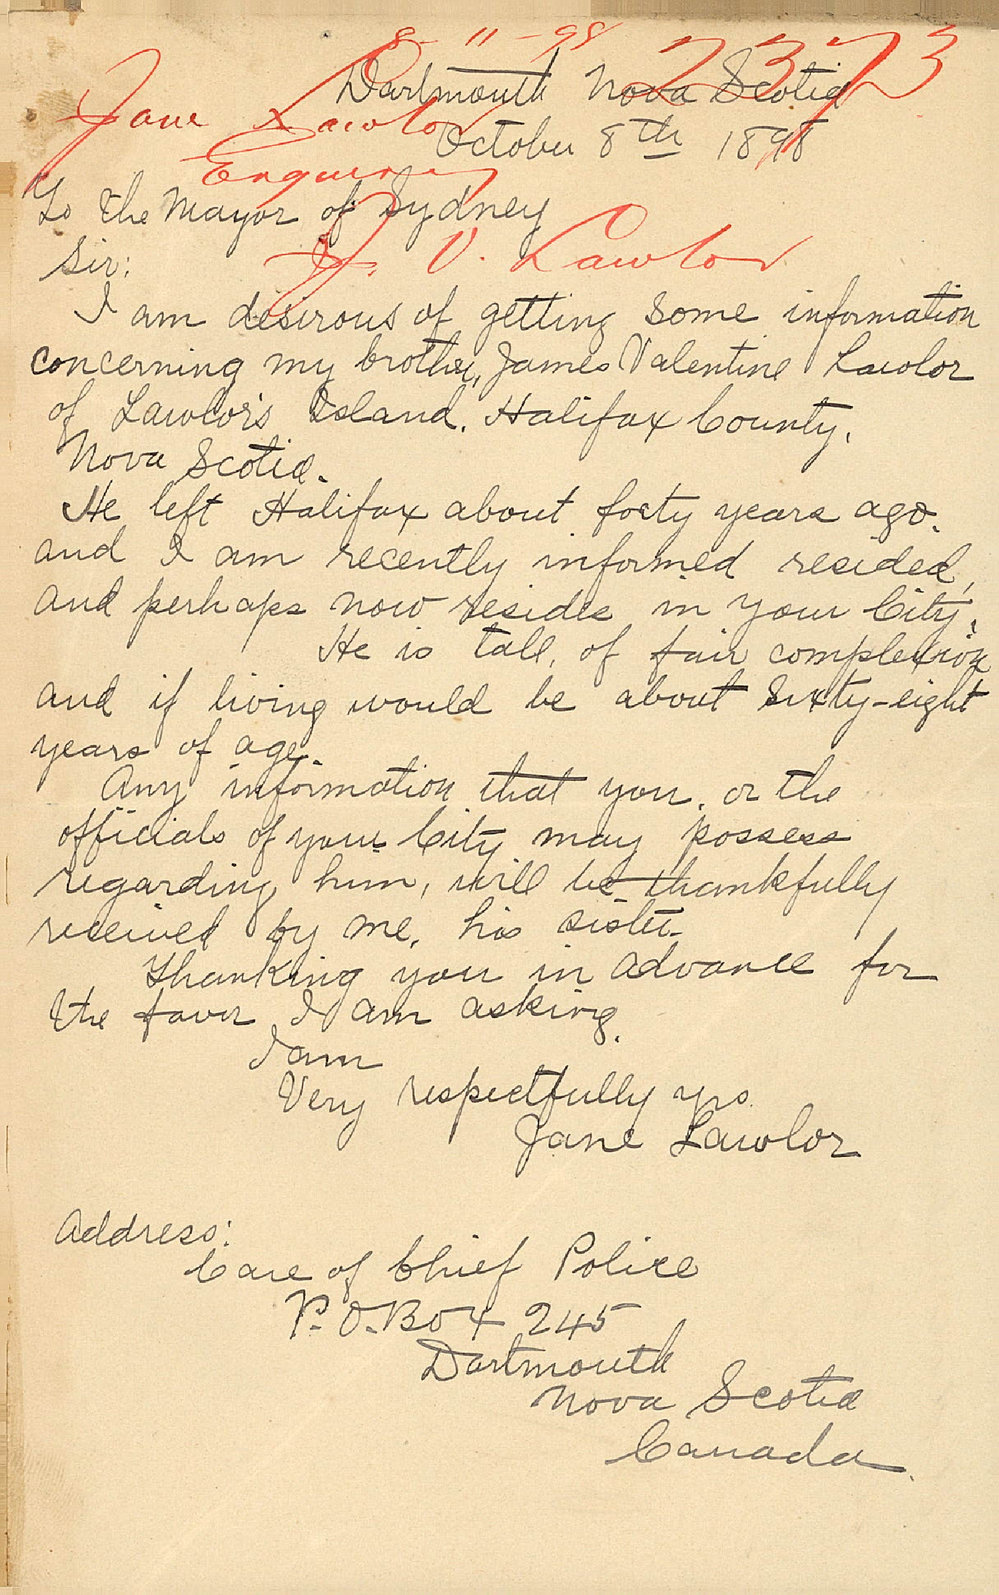 8-11-98
2373
Jane Lawlor
Enquiring
J. V. Lawlor
Dartmouth Nova Scotia
October 8th 1898
To the Mayor of Sydney
Sir:
I am desirous of getting some information
concerning my brother, James Valentine Lawlor
of Lawlor's Island. Halifax County.
Nova Scotia.
He left Halifax about forty years ago.
and I am recently informed resided,
and perhaps now resides in your City.
He is tall, of fair complexion
and if living would be about sixty-eight
years of age.
Any information that you, or the
officials of your City may possess
regarding him, will be thankfully
received by me, his sister.
Thanking you in advance for
the favor I am asking.
I am
Very respectfully yrs.
Jane Lawlor
Address:
Care of Chief Police
P.O. Box 245
Dartmouth
Nova Scotia
Canada.